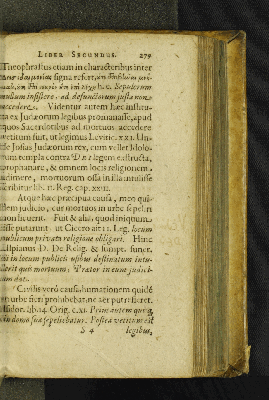 LIBER SECUNDUS. 279
Theophrastus etiam in characteribus inter
signa refert,
Sepulcrum
nullum insistere, ad defunctorum justa non
accedere. Videntur autem hæc institu-
ta ex Judæorum legibus promanasse, apud
quos Sacerdotibus ad mortuos accedere
vetitum fuit, ut legimus Levitic. XXI. Un-
de Josias Judæorum rex, cum vellet Idolo-
rum templa contra DEI legem exstructa,
profanare, & omnem locis religionem
adimere, mortuorum ossa in illa intulisse
scribitur lib. II. Reg. cap. XXIII.
Atque hæc præcipua causa, meo qui-
dem judicio, cur mortuos in urbe sepeliri
non sinerent. Fuit & alia, quod iniquum
esse putarunt, ut Cicero ait II. Leg. locum
publicum privata religione obligari. Hinc
Ulpianus D. De Relig. & sumpt. funer.
in locum publicis usibus destinatum intu-
lerit quis mortuum; Prætor in eum judici-
um dat.
Civilis verò causa, humationem quidē
in urbe fieri prohibebat, ne aër putresceret.
Isidor. lib. 14. Orig. c. XI. Prius autem quisq;
in domo sua sepeliebatur. Postea vetitum est
S 4 legibus,